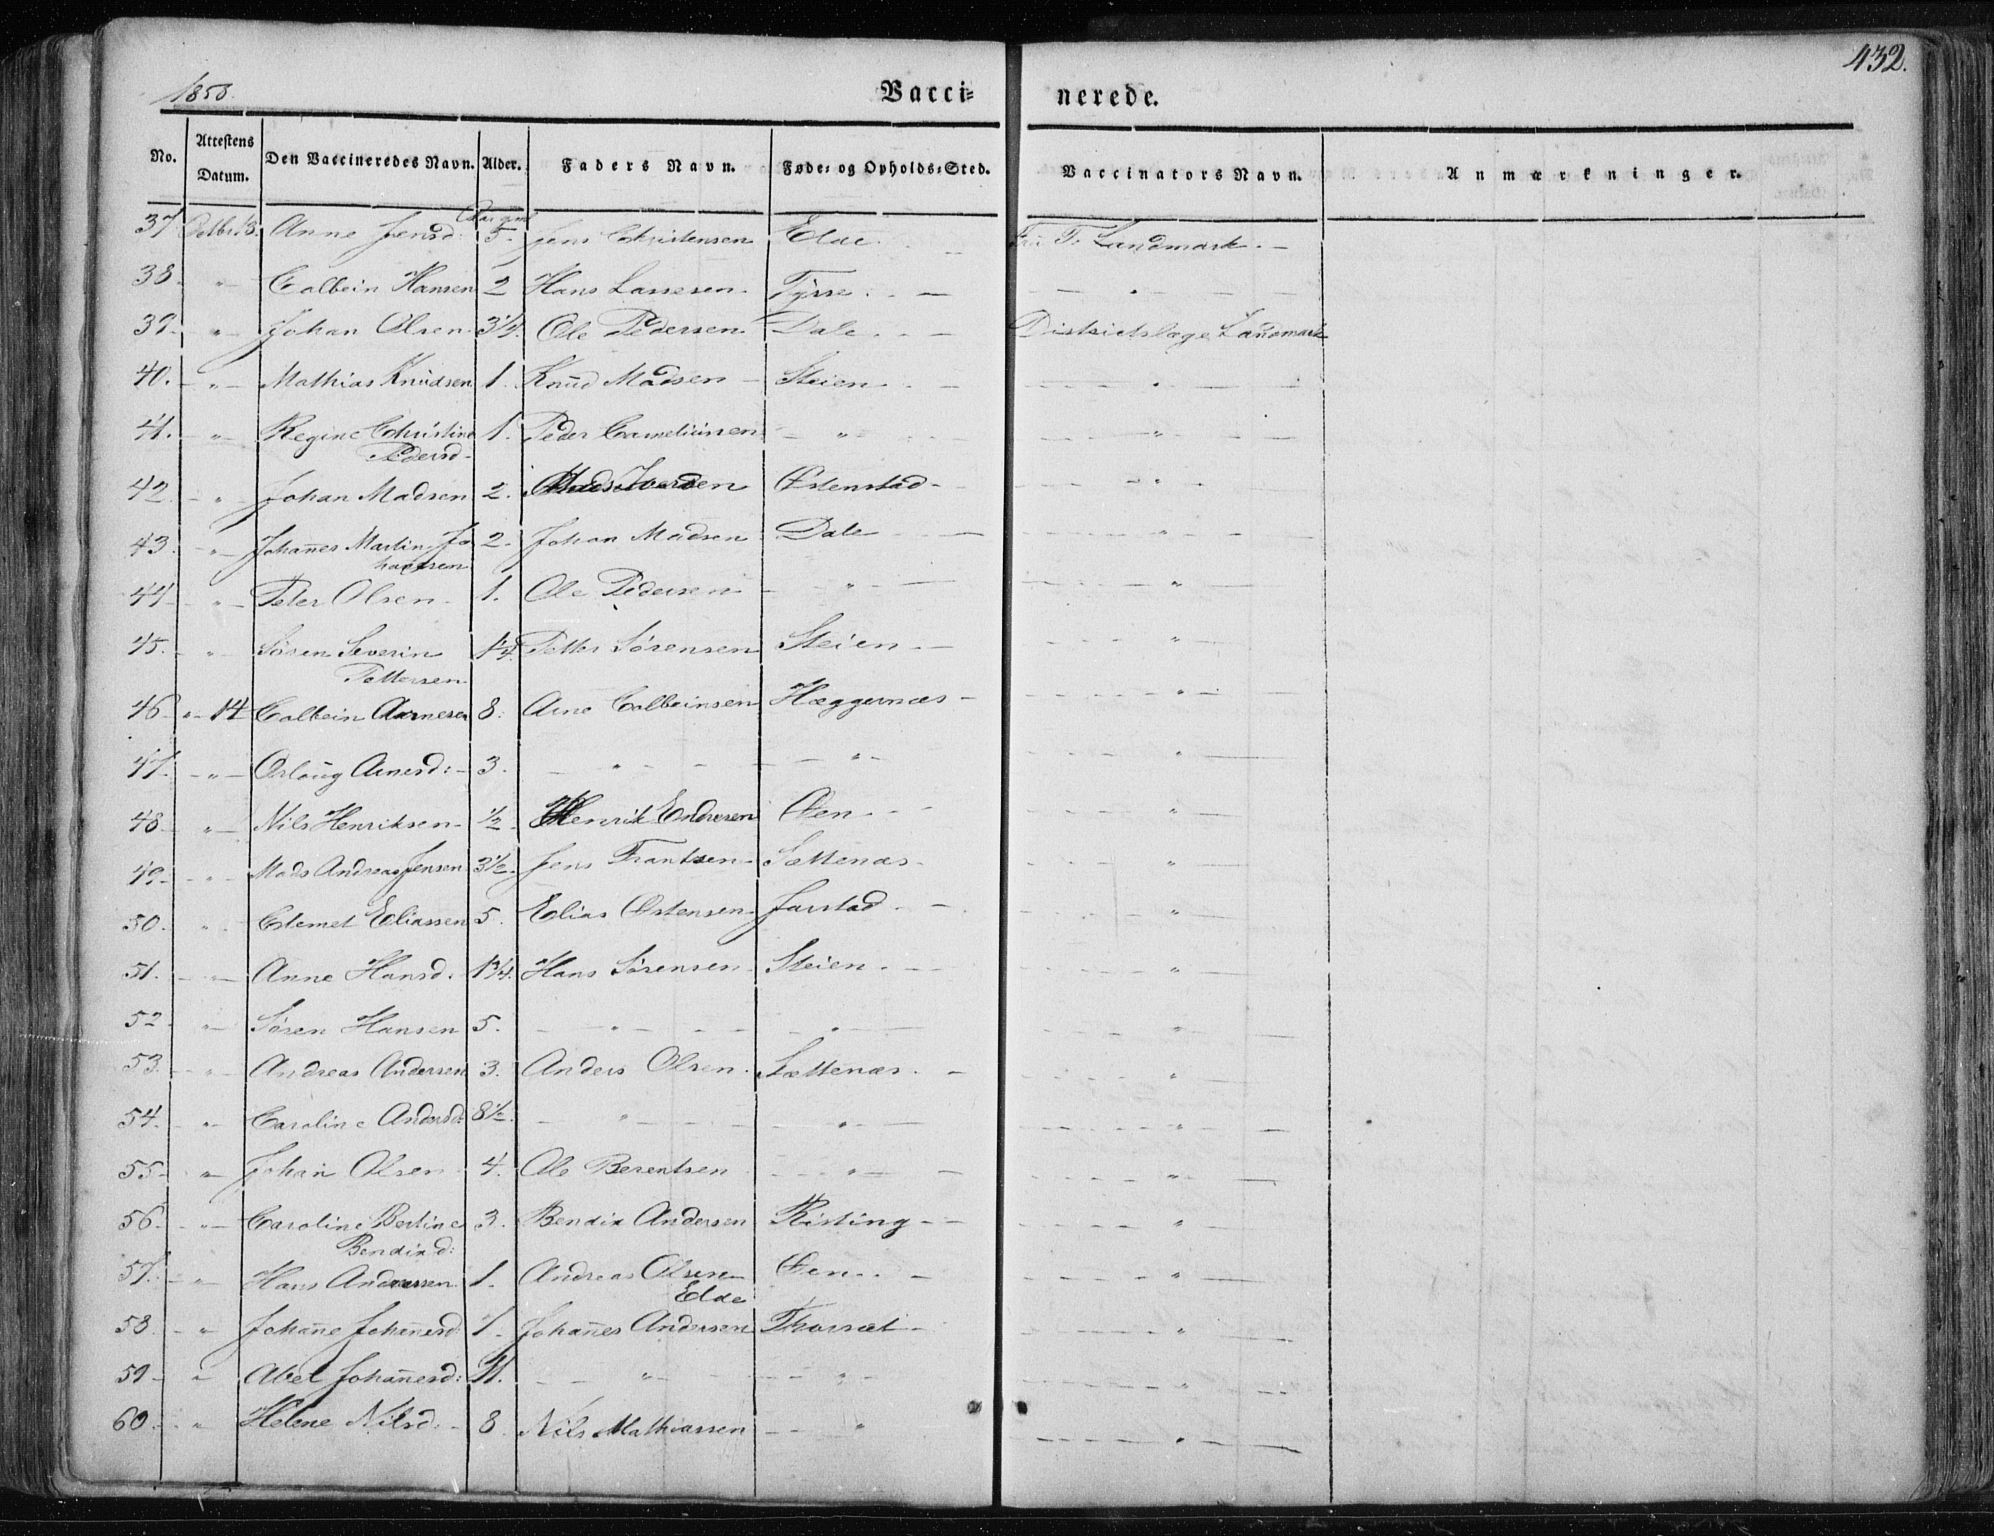 432.
1850.
Vacci= nerede.
No. Attestens Datum. Den Vaccineredes Navn. Alder. Faders Navn. Føde= og Opholds=Sted. Vaccinators Navn. Anmærkninger.
Aar gml
37 Octbr. 13. Anne Jensd. 5. Jens Christensen Elde. — Fru T. Landmark. —
38. " Colbein Hansen 2 Hans Lassesen. Tysse. — — " —
39. " Johan Olsen. 3¼. Ole Pedersen Dale. — Districtslæge Landmark
40. — " — Mathias Knudsen 1. Knud Madsen — Steien. — — " —
41. — " — Regine Christine 1. Peder Corneliussen — " — — " —
Pedersd.
42. — " Johan Madsen 2. Mads Iversen Østenstad — — " —
43. — " — Johannes Martin Jo 2. Johan Madsen Dale — — " —
hansen
44. — " — Peter Olsen. 1. Ole Pedersen — " — — " —
45. — " Søren Severin 1¼. Petter Sørensen Steien. — — " —
Pettersen
46. " 14 Colbein Arnesen 8. Arne Colbeinsen Hæggernæs — — " —
47. — " — Orloug Arnesd: 3. — " — — " — — " —
48. — " — Nils Henriksen ½. Henrik Endresen Øen. — — " —
49. — " — Mads Andreas Jensen 3½. Jens Frantsen Sættenæs — — " —
50. " Clemet Eliassen 5. Elias Østensen Jarstad. — — " —
51. — " — Anne Hansd. 1¾. Hans Sørensen Steien. — — " —
52. " — Søren Hansen 5. — " — — " — — " —
53. — " — Andreas Andersen 3. Anders Olsen. Sættenæs. — — " —
54. — " — Caroline Andersd: 8½. — " — — " — — " —
55. — " — Johan Olsen 4. Ole Berentsen — " — — " —
56. — " — Caroline Bertine 3. Bendix Andersen Risting — — " —
Bendixd:
57. — " Hans Andreassen 1. Andreas Olsen Øen. — — " —
Elde
58. — " Johanne Johannesd. 1. Johannes Andersen Thorsæt — — " —
59. — " Abel Johannesd: 11. — " — — " — — " —
60. — " Helene Nilsd. 8. Nils Mathiassen — " — — " —